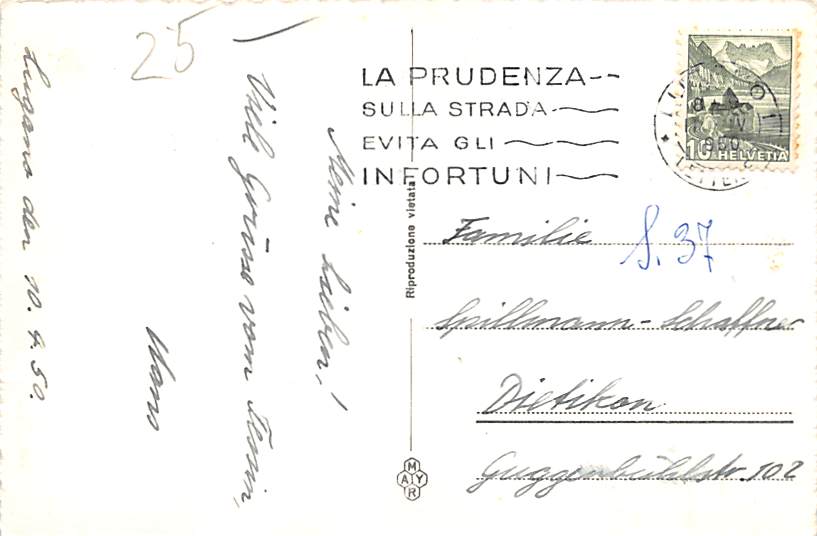 25
Lugano den 10.4.50.
Meine Lieben!
Viele Grüsse vom Tessin,
Hans
LA PRUDENZA
SULLA STRADA
EVITA GLI
INFORTUNI
10 HELVETIA
Riproduzione vietata
Familie
S. 37
Spillmann-Schaffner
Dietikon
Guggenbühlstr. 102
MAYR